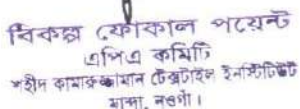 বিকল্প ফোকাল পয়েন্ট
এপিএ কমিটি
শহীদ কামারুজ্জামান টেক্সটাইল ইনস্টিটিউট
মান্দা, নওগাঁ।